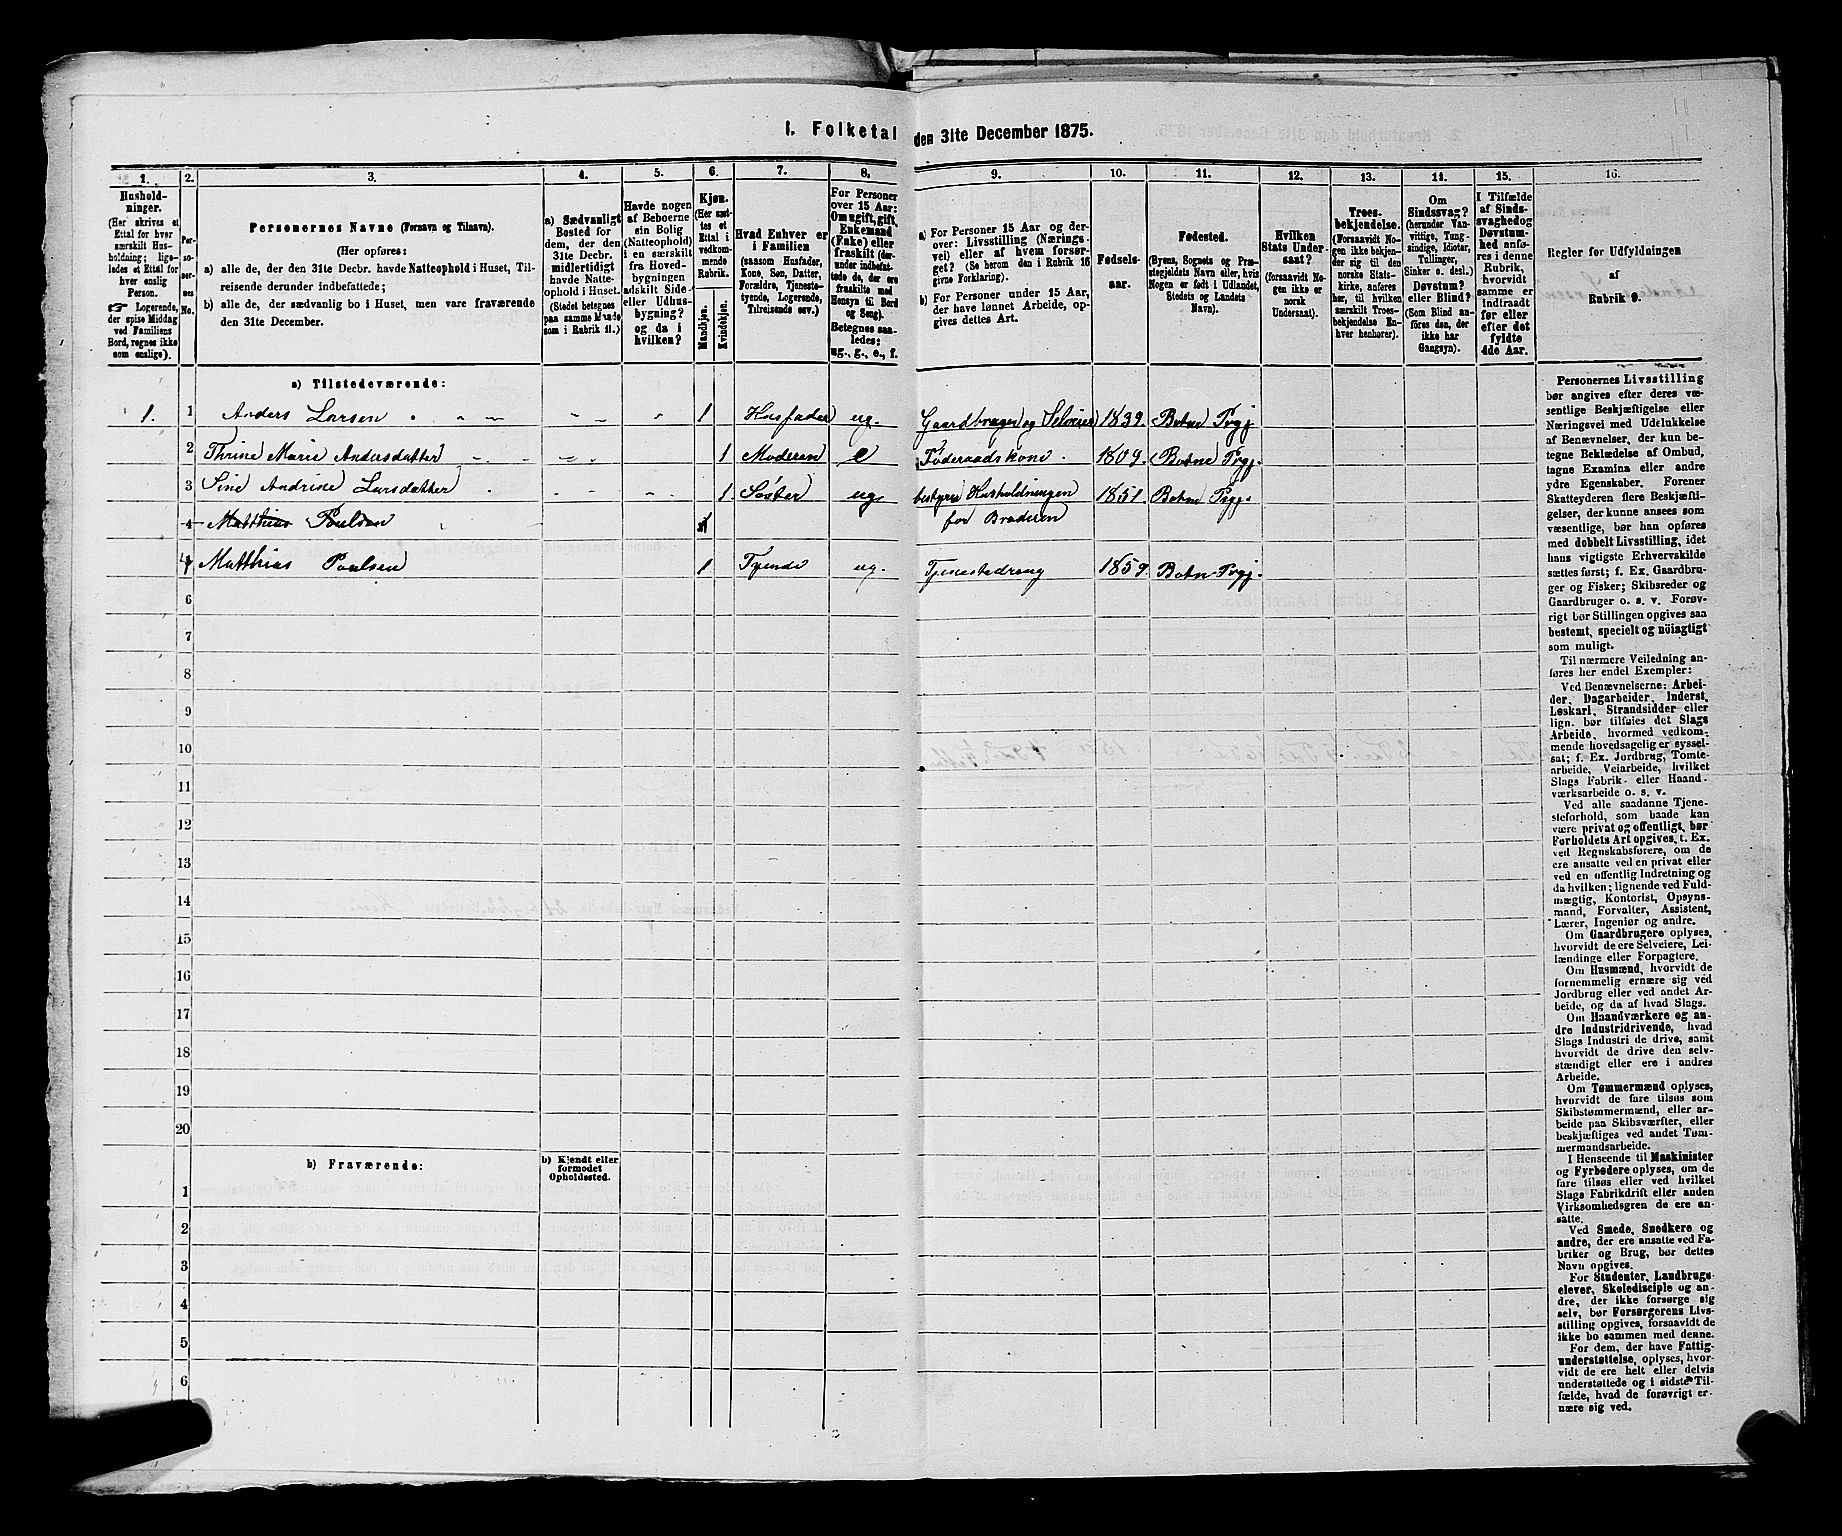 1. Folketal den 31te December 1875.
1. 2. 3. 4. 5. 6. 7. 8. 9. 10. 11. 12. 13. 14. 15. 16.
Hushold-
ninger.
(Her skrives et
Ettal for hver
særskilt Hus-
holdning; lige-
ledes et Ettal for
hver enslig
Person.
☞ Logerende,
der spise Middag
ved Familiens
Bord, regnes ikke
som enslige).
Per-
so-
ner-
nes
No.
Personernes Navne (Fornavn og Tilnavn).
(Her opføres:
a) alle de, der den 31te Decbr. havde Natteophold i Huset, Til-
reisende derunder indbefattede;
b) alle de, der sædvanlig bo i Huset, men vare fraværende
den 31te December.
a) Sædvanligt
Bosted for
dem, der den
31te Decbr.
midlertidigt
havde Natte-
ophold i Huset.
(Stedet betegnes
paa samme Maade
som i Rubrik 11.)
Havde nogen
af Beboerne
sin Bolig
(Natteophold)
i en særskilt
fra Hoved-
bygningen
adskilt Side-
eller Udhus-
bygning?
og da i
hvilken?
Kjøn.
(Her sæt-
tes et
Ettal i
vedkom-
mende
Rubrik.
Mandkjøn.
Kvindekjøn.
Hvad Enhver er
i Familien
(saasom Husfader,
Kone, Søn, Datter,
Forældre, Tjeneste-
tyende, Logerende,
Tilreisende osv.)
For Personer
over 15 Aar:
Om ugift, gift,
Enkemand
(Enke) eller
fraskilt (der-
under indbefat-
tede de, der ere
fraskilte med
Hensyn til Bord
og Seng).
Betegnes saa-
ledes:
ug., g., e., f.
a) For Personer 15 Aar og der-
over: Livsstilling (Nærings-
vei) eller af hvem forsør-
get? (Se herom den i Rubrik 16
givne Forklaring).
b) For Personer under 15 Aar,
der have lønnet Arbeide, op-
gives dettes Art.
Fødsels-
aar.
Fødested.
(Byens, Sognets og Præ-
stegjeldets Navn eller, hvis
Nogen er født i Udlandet,
Stedets og Landets
Navn).
Hvilken
Stats Under-
saat?
(forsaavidt No-
gen ikke er
norsk
Undersaat).
Troes-
bekjendelse.
(Forsaavidt No-
gen ikke bekjen-
der sig til den
norske Stats-
kirke, anføres
her, til hvilken
særskilt Troes-
bekjendelse En-
hver henhører).
Om
Sindssvag?
(herunder Van-
vittige, Tung-
sindige, Idioter,
Tullinger,
Sinker o. desl.)
Døvstum?
eller Blind?
(Som Blind an-
føres den, der
ikke har
Gangsyn).
I Tilfælde
af Sinds-
svaghed og
Døvstum-
hed anfø-
res i denne
Rubrik,
hvorvidt
samme er
indtraadt
før eller
efter det
fyldte
4de Aar.
Regler for Udfyldningen
af
Rubrik 9.
a) Tilstedeværende:
1. 1 Anders Larsen 1 Husfader ug. Gaardbruger og Selveier 1839. Botne Prgj
2 Thrine Marie Andersdatter 1 Moderen e Føderaadskone. 1809. Botne Prgj.
3 Sine Andrine Larsdatter 1. Søster ug. bestyrer Husholdningen 1851. Botne Prgj.
for Broderen
4 Matthias Poulsen
4 Matthias Poulsen 1 Tyende ug. Tjenestedreng 1859. Botne Prgj.
6
7
8
9
10
11
12
13
14
15
16
17
18
19
20
b) Fraværende:
b) Kjendt eller
formodet
Opholdssted.
1
2
3
4
5
6
Personernes Livsstilling
bør angives efter deres væ-
sentlige Beskjæftigelse eller
Næringsvei med Udelukkelse
af Benævnelser, der kun be-
tegne Beklædelse af Ombud,
tagne Examina eller andre
ydre Egenskaber. Forener
Skatteyderen flere Beskjæfti-
gelser, der kunne ansees som
væsentlige, bør han opføres
med dobbelt Livsstilling, idet
hans vigtigste Erhvervskilde
sættes først; f. Ex. Gaardbru-
ger og Fisker; Skibsreder og
Gaardbruger o. s. v. Forøv-
rigt bør Stillingen opgives saa
bestemt, specielt og nöiagtigt
som muligt.
Til nærmere Veiledning an-
føres her endel Exempler:
Ved Benævnelserne: Arbei-
der, Dagarbeider, Inderst,
Løskarl, Strandsidder eller
lign. bør tilføies det Slags
Arbeide, hvormed vedkom-
mende hovedsagelig er syssel-
sat; f. Ex. Jordbrug, Tomte-
arbeide, Veiarbeide, hvilket
Slags Fabrik- eller Haand-
værksarbeide o. s. v.
Ved alle saadanne Tjene-
steforhold, som baade kan
være privat og offentligt, bør
Forholdets Art opgives, t. Ex.
ved Regnskabsførere, om de
ere ansatte ved en privat eller
ved en offentlig Indretning og
da hvilken; lignende ved Fuld-
mægtig, Kontorist, Opsyns-
mand, Forvalter, Assistent,
Lærer, Ingeniør og andre.
Om Gaardbrugere oplyses,
hvorvidt de ere Selveiere, Lei-
lændinge eller Forpagtere.
Om Husmænd, hvorvidt de
fornemmelig ernære sig ved
Jordbrug eller ved andet Ar-
beide, og da af hvad Slags.
Om Haandværkere og an-
dre Industridrivende, hvad
Slags Industri de drive, samt
hvorvidt de drive den selv-
stændigt eller ere i andres
Arbeide.
Om Tømmermænd oplyses,
hvorvidt de fare tilsøs som
Skibstømmermænd, eller ar-
beide paa Skibsværfter, eller
beskjæftiges ved andet Tøm-
mermandsarbeide.
I Henseende til Maskinister
og Fyrbødere oplyses, om de
fare tilsøs eller ved hvilket
Slags Fabrikdrift eller anden
Virksomhedsgren de ere an-
satte.
Ved Smede, Snedkere og
andre, der ere ansatte ved Fa-
briker og Brug, bør dettes
Navn opgives.
For Studenter, Landbrugs-
elever, Skoledisciple og an-
dre, der ikke forsørge sig
selv, bør Forsørgerens Livs-
stilling opgives, forsaavidt de
ikke bo sammen med denne.
For dem, der have Fattig-
understøttelse, oplyses, hvor-
vidt de ere helt eller delvis
understøttede og i sidste Til-
fælde, hvad de forøvrigt er-
nære sig ved.